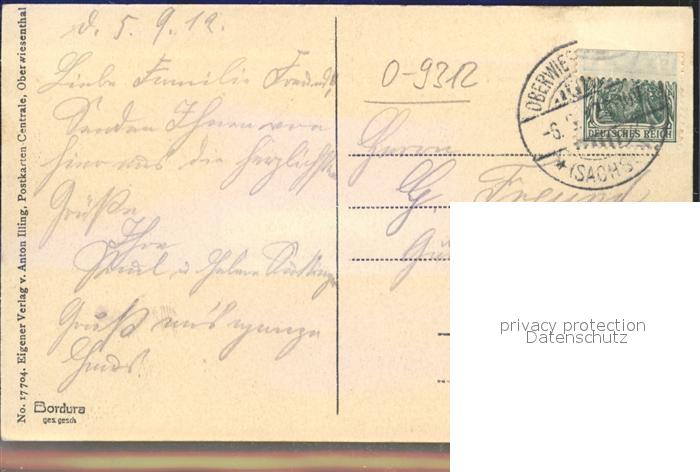 No. 17704. Eigener Verlag v. Anton Illing, Postkarten-Centrale, Oberwiesenthal
d. 5. 9. 12.
Liebe Familie Freund!
Senden Ihnen von
hier aus die herzlichsten
Grüße
Ihre
Paul u. Helene
Gruß an's ganze
Haus.
Bordura
ges. gesch
0-9312
OBERWIES
-6.
* (SACHS
DEUTSCHES REICH
Herrn
G. Freund
privacy protection
Datenschutz